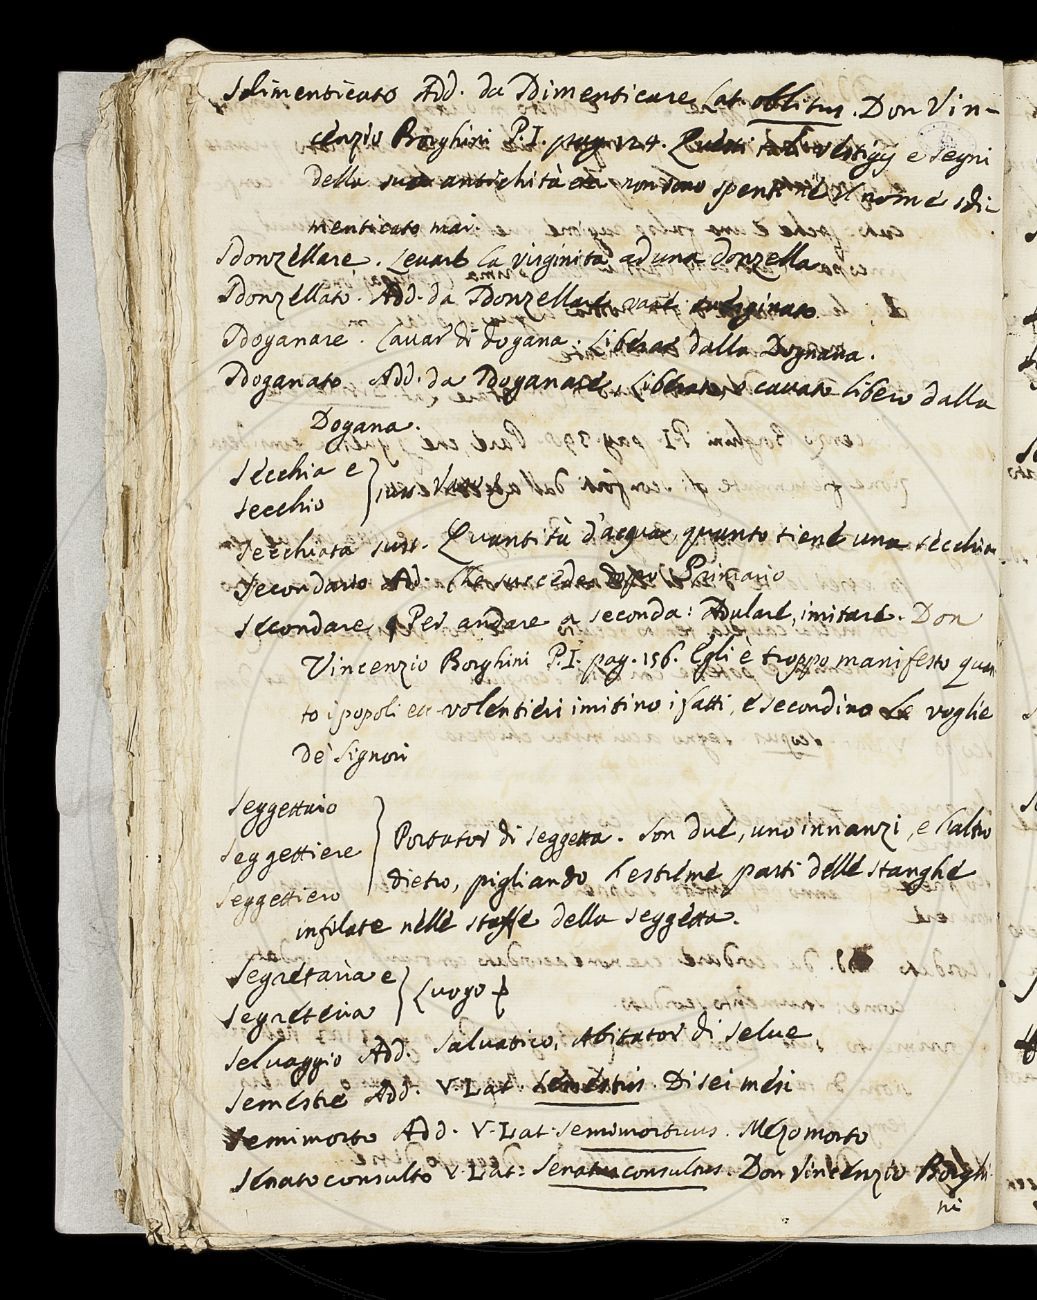 Sdimenticato Add. da Dimenticare Lat. oblitus. Don Vin-
cenzio Borghini P.I. pag. 124. Questi tali vestigij e segni
della sua antichità non sono spenti nè il nome sdi-
menticato mai.
Sdonzellare. Levare la virginità ad una donzella
Sdonzellato. Add. da Sdonzellare
Sdoganare. Cavar di dogana. Liberar dalla Dognana.
Sdoganato. Add. da Sdoganare. Liberato, o cavato libero dalla
Dogana.
Secchia e
Secchio } sus. Vaso
Secchiata sus. Quantità d'acqua, quanto tiene una secchia
Secondario Ad. Che succede dopo Primario
Secondare, Per andare a seconda: Adulare, imitare. Don
Vincenzio Borghini P.I. pag. 156. Egli è troppo manifesto quan
to i popoli volentieri imitino i fatti, e secondino le voglie
de' Signori
Seggettaio
Seggettiere } Portator di seggetta. Son due, uno innanzi, e l'altro
Seggettiero dietro, pigliando l'estreme parti delle stanghe
infilate nelle staffe della seggetta.
Segretaria e
Segreteria } Luogo
Selvaggio Add. Salvatico, Abitator di selve
Semestre Add. V. Lat. Semestris. Di sei mesi
Semimorto Add. V. Lat. Semimortuus. Mezo morto
Senatoconsulto V. Lat: Senatusconsultus. Don Vincenzio Borghi
ni